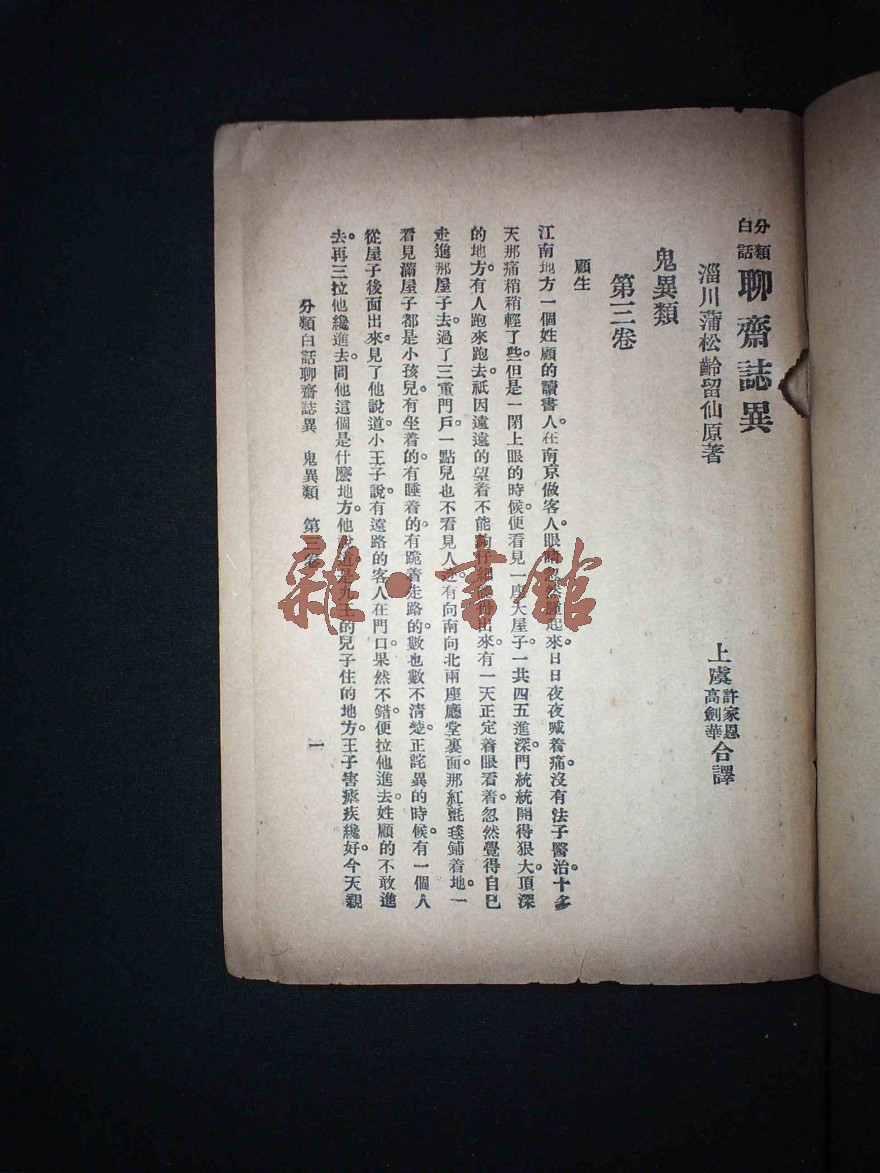 分類白話聊齋誌異
淄川蒲松齡留仙原著
上虞許家恩高劍華合譯
鬼異類
第三卷
顧生
江南地方一個姓顧的讀書人。在南京做客人。眼睛忽然腫起來。日日夜夜喊着痛。沒有法子醫治。十多
天那痛稍稍輕了些。但是一閉上眼的時候。便看見一座大屋子。一共四五進深。門統統開得狠大。頂深
的地方。有人跑來跑去。祇因遠遠的望着不能夠仔細出來。有一天正定着眼看着。忽然覺得自己
走進那屋子去。過了三重門戶。一點兒也不看見人。有向南向北兩座廳堂。裏面那紅氈毯鋪着地。一
看見滿屋子都是小孩兒。有坐着的。有睡着的。有跪着走路的。數也數不清楚。正詫異的時候。有一個人
從屋子後面出來。見了他說道。小王子說有遠路的客人在門口。果然不錯。便拉他進去。姓顧的不敢進
去。再三拉他纔進去。問他這個是什麼地方。他說道是九王的兒子住的地方。王子害瘧疾纔好。今天親
分類白話聊齋誌異　鬼異類　第三卷
一
雜·書館